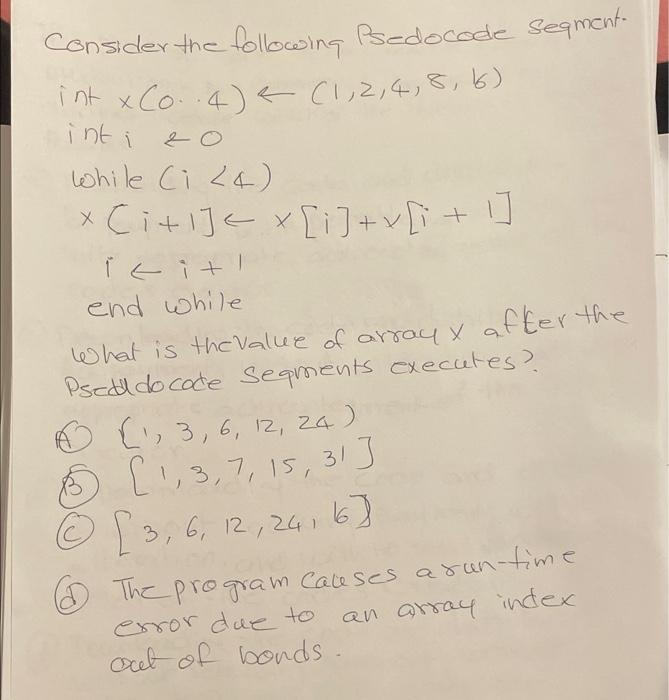 Consider the following Psedocode segment.
int x(0..4) ← (1,2,4,8,16)
int i ← 0
while (i <4)
x [i+1] ← x [i]+x[i + 1]
i ← i + 1
end while
What is the value of array x after the
Pseudocode segments executes?
(A) [1, 3, 6, 12, 24)
(B) [1, 3, 7, 15, 31]
(C) [3, 6, 12, 24, 16]
(d) The program causes a run-time
error due to an array index
out of bonds.